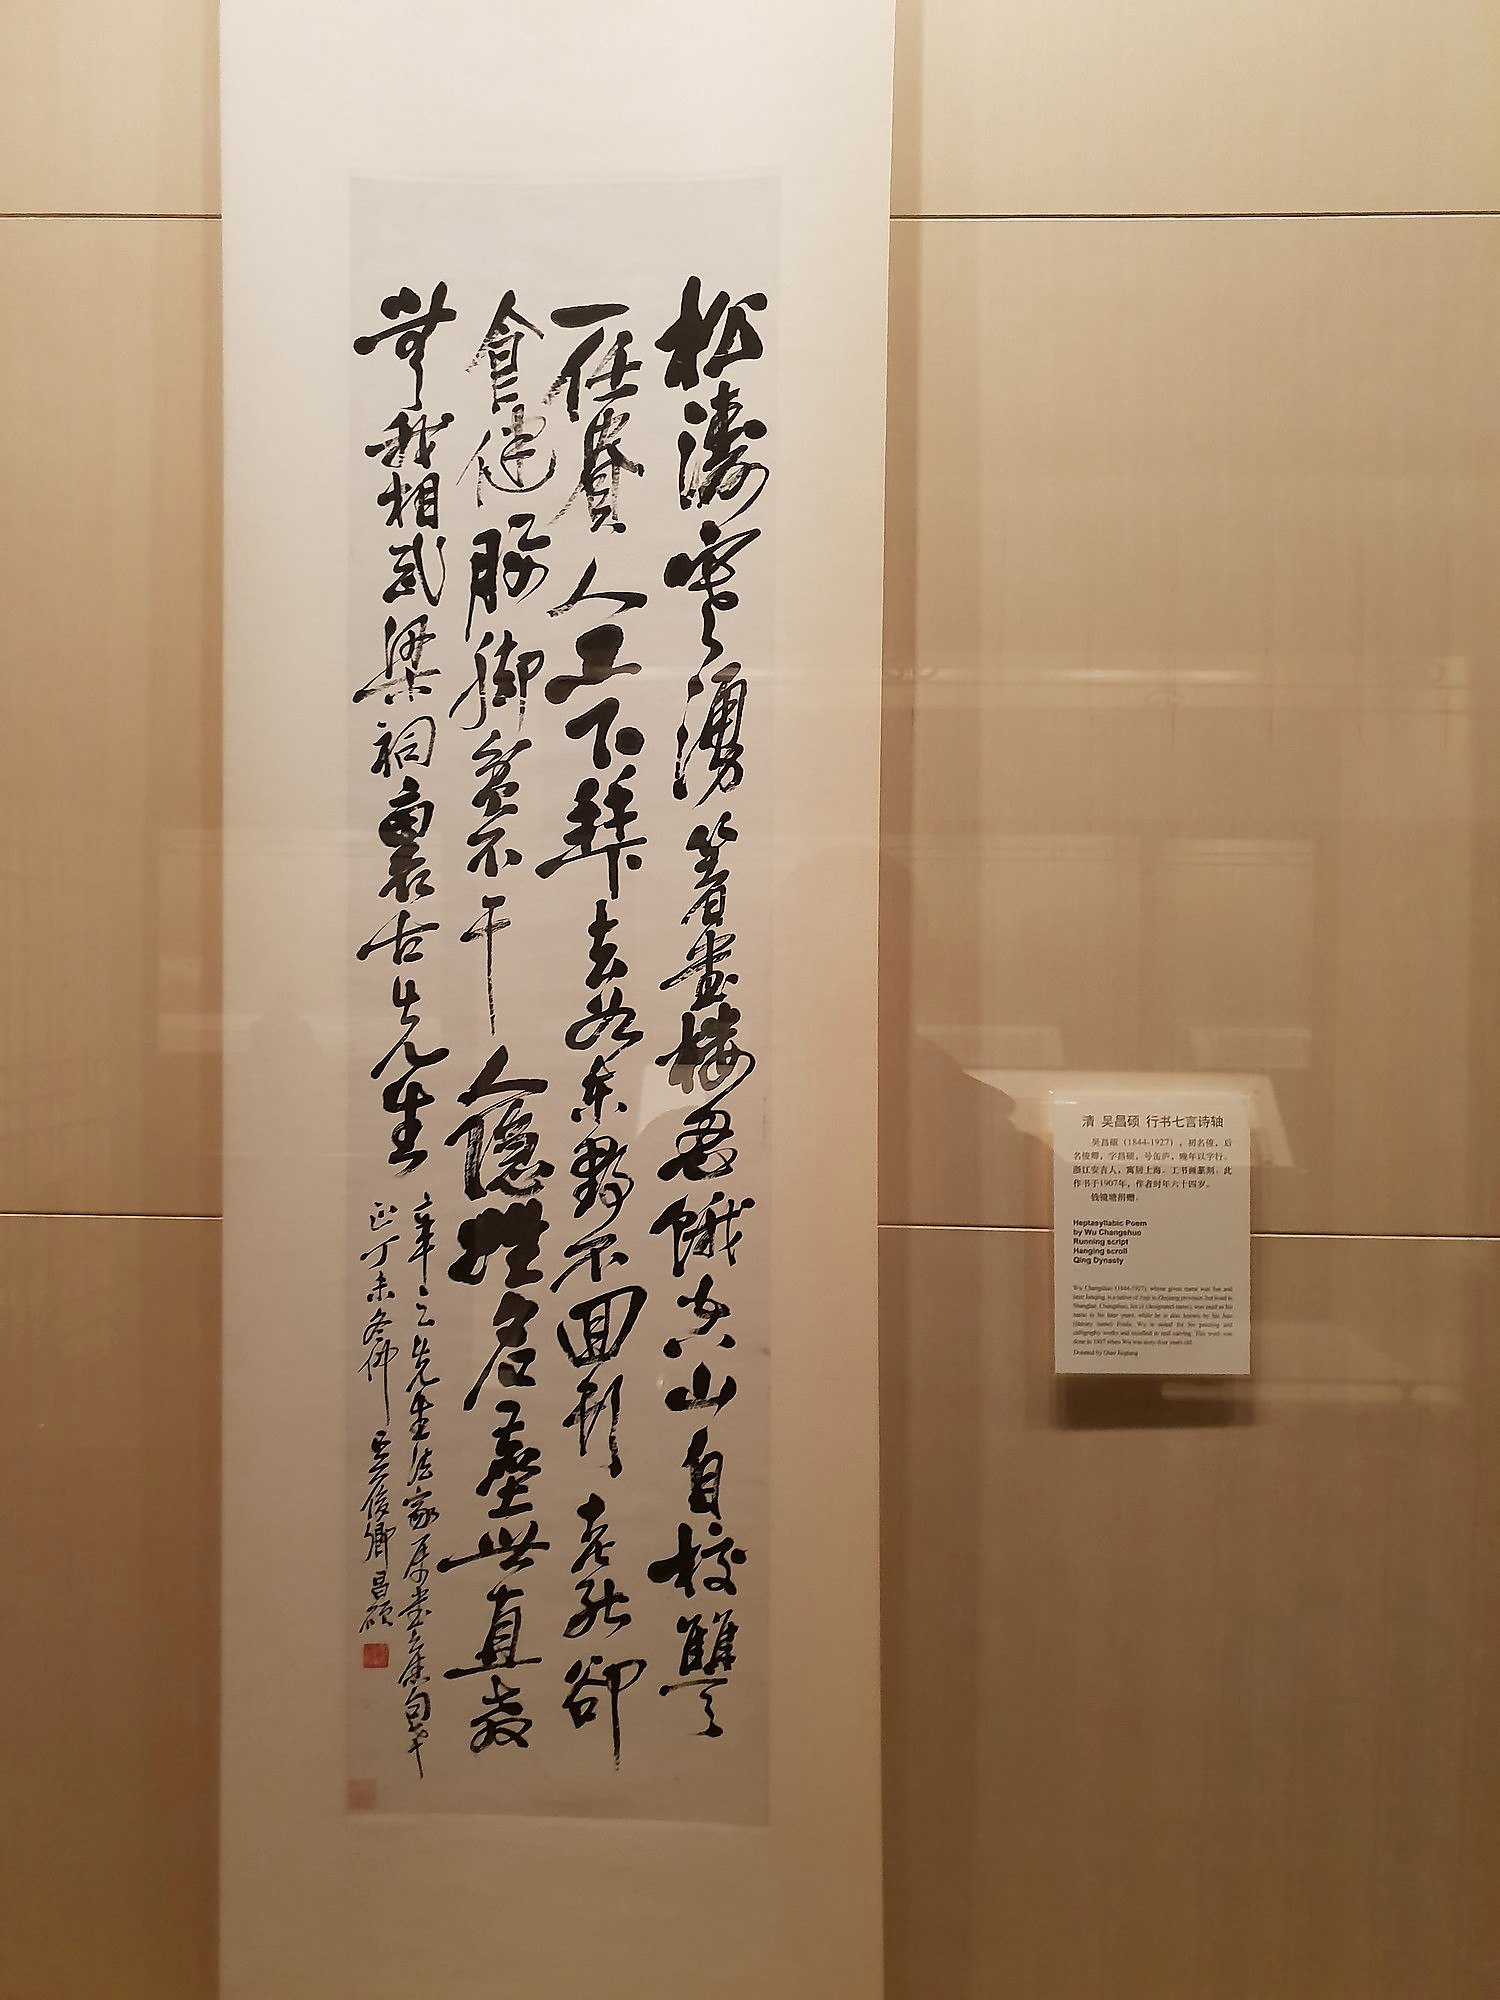 松濤寒湧著書樓忍餓空山自校讎
一任人工下拜去如東不回老能卻
食健腰脚貧不干人隱姓名塵世直教
無我相武梁祠裏古先生
辛之先生法家屬書舊句乞
正丁未冬仲 吳俊卿昌碩
清 吴昌硕 行书七言诗轴
吴昌硕（1844-1927），初名俊，后
名俊卿，字昌硕，号缶庐，晚年以字行。
浙江安吉人，寓居上海。工书画篆刻。此
作书于1907年，作者时年六十四岁。
钱镜塘捐赠。
Heptasyllabic Poem
by Wu Changshuo
Running script
Hanging scroll
Qing Dynasty
Wu Changshuo (1844-1927), whose given name was Jun and
later Junqing, is a native of Anji in Zhejiang province, but lived in
Shanghai. Changshuo, his zi (designated name), was used as his
name in his later years, while he is also known by his hao
(literary name) Foulu. Wu is noted for his painting and
calligraphy works and excelled in seal carving. This work was
done in 1907 when Wu was sixty-four years old.
Donated by Qian Jingtang